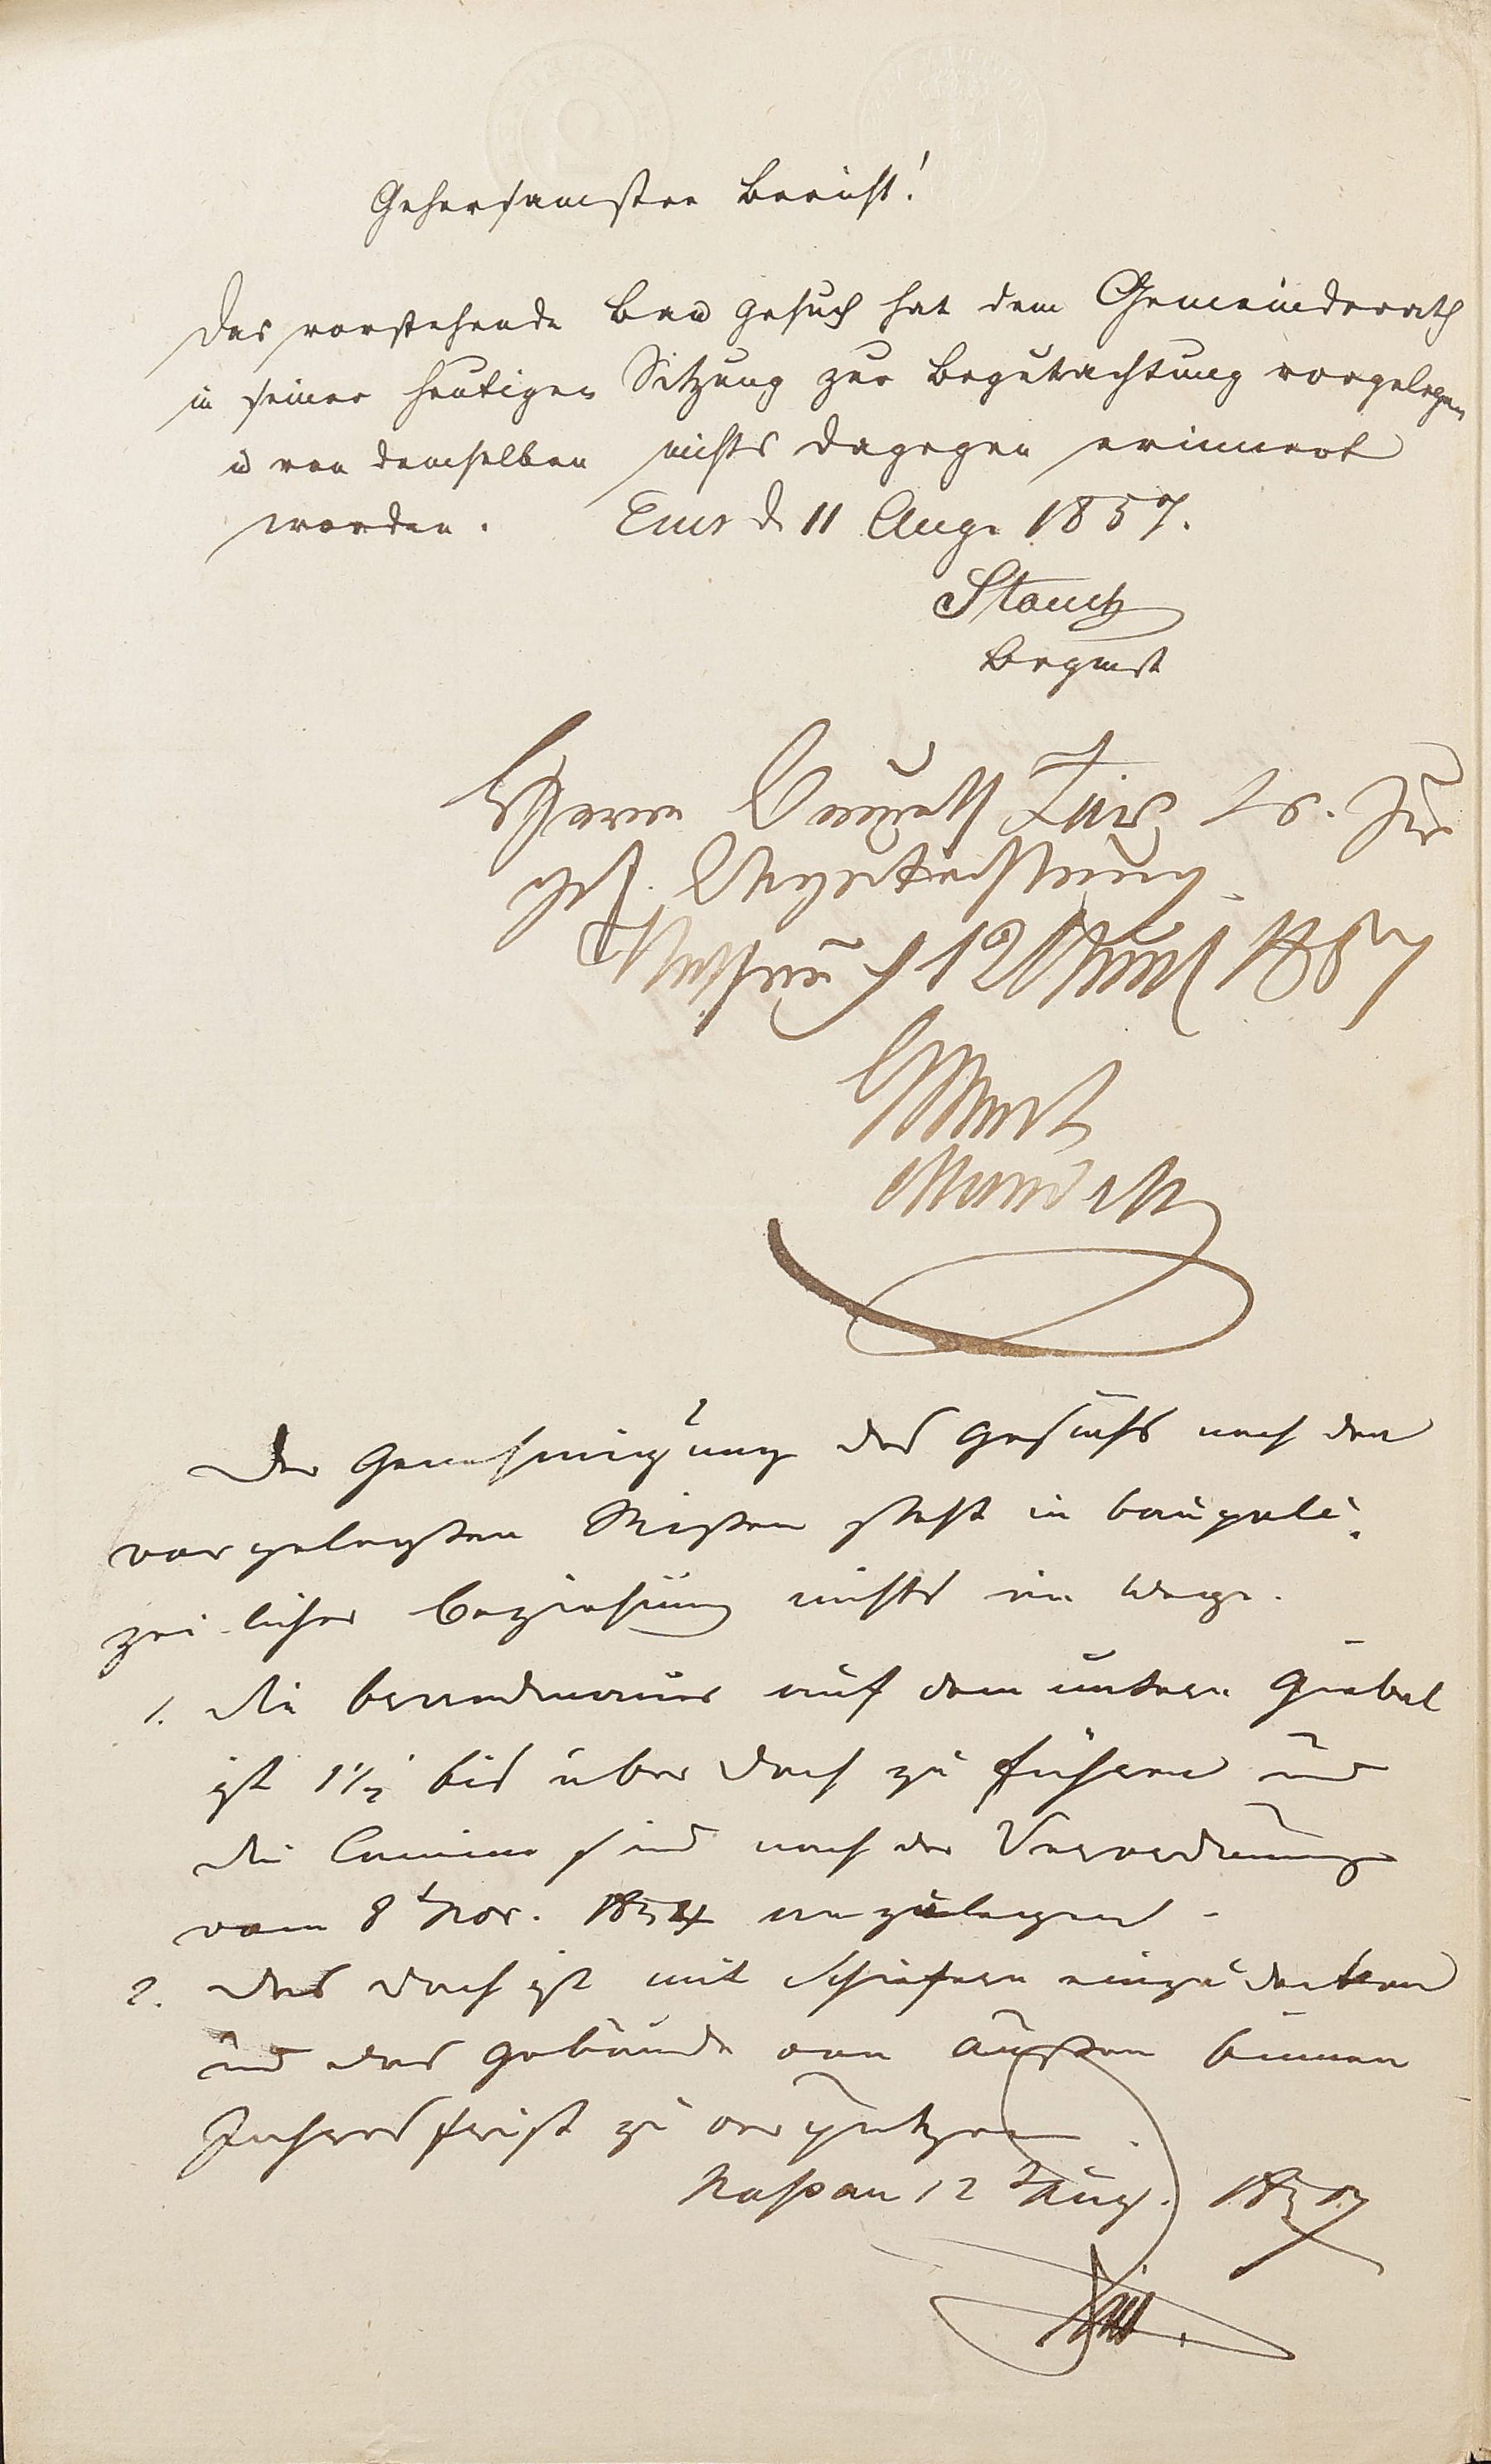 Gehorsamster Bericht!
Das vorstehende Bau gesuch hat dem Gemeinderath
in seiner heutigen Sitzung zur Begutachtung vorgelegen
u von demselben nichts dagegen erinnert
worden. Ems d 11 Aug. 1857.
Stauch
Brgmst
Herrn zur
gef. Begutachtung.
Nassau d 12 Aug 1857
Der Genehmigung des Gesuchs nach den
vorgelegten Rißen steht in baupoli-
zeilicher Beziehung nichts im Wege.
1. die Brandmauer auf dem untern Giebel
ist 1½' bis über Dach zu führen und
die Camine sind nach der Verordnung
vom 8t Nov. 1854 anzulegen.
2. das Dach ist mit Schiefern einzudecken
und das Gebäude von Außen binnen
Jahresfrist zu verputzen.
Naßau 12 Aug. 1857